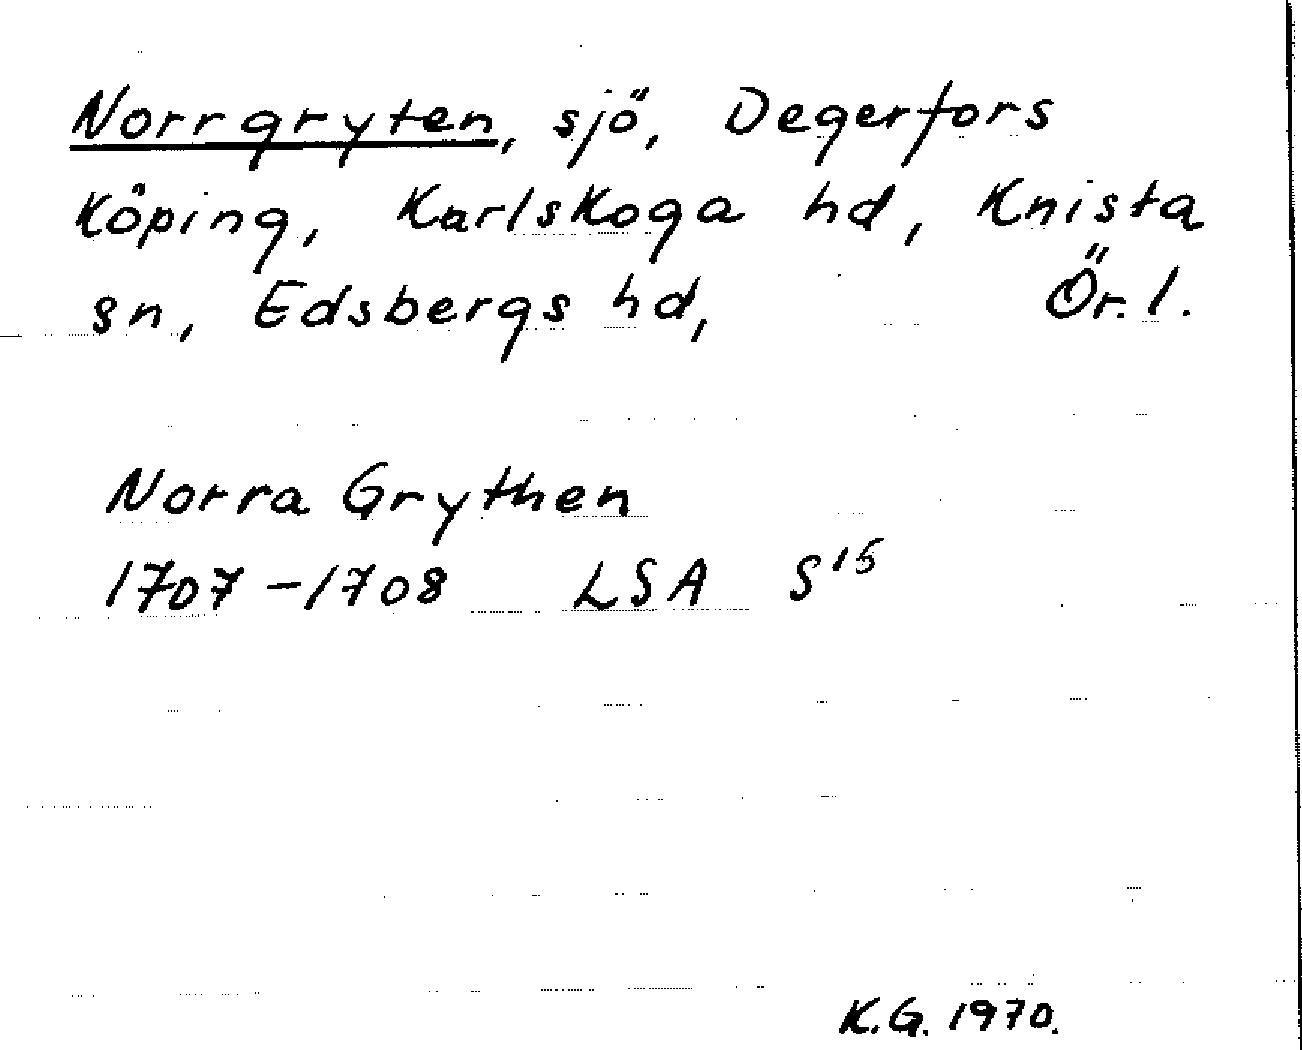 Norrgryten, sjö, Degerfors
Köping, Karlskoga hd, Knista
sn, Edsbergs hd, Ör. l.
Norra Grythen
1707-1708 LSA S¹⁵
K.G. 1970.